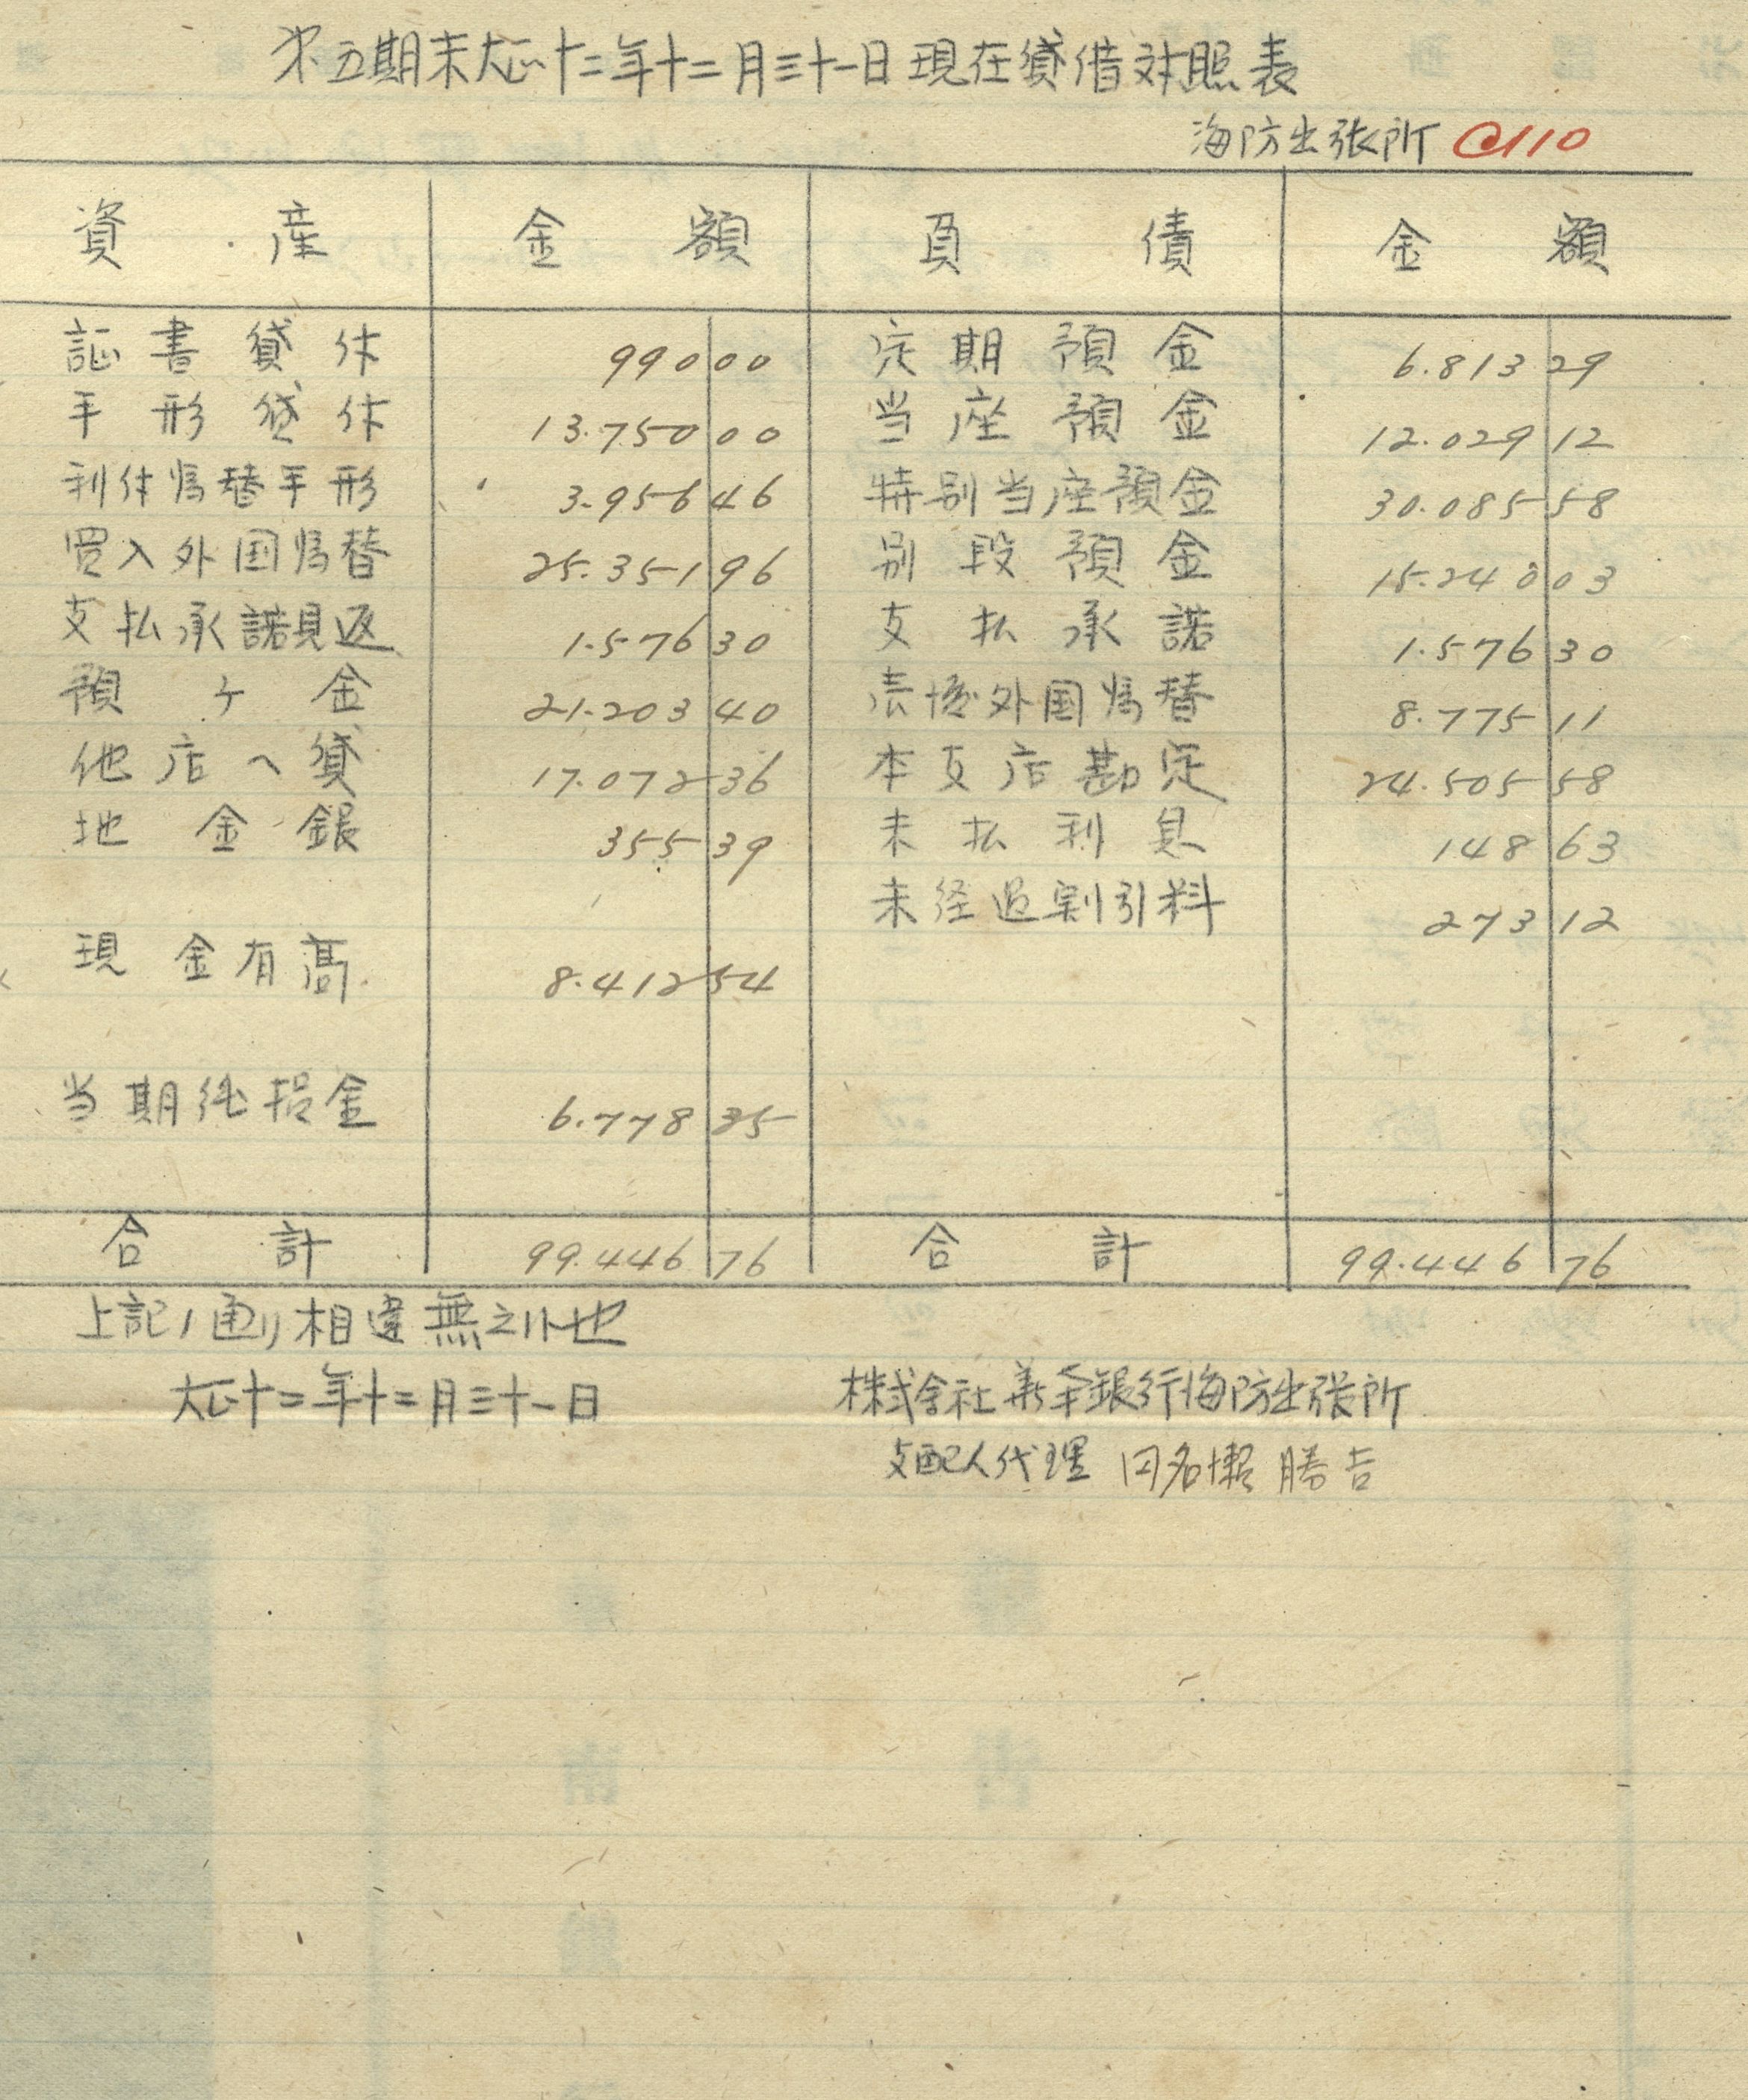 第五期末大正十二年十二月三十一日現在貸借対照表
海防出張所 @110
資産 金額 負債 金額
証書貸付 990 00 定期預金 6.813 29
手形貸付 13.750 00 当座預金 12.029 12
利付為替手形 3.956 46 特別当座預金 30.085 58
買入外国為替 25.351 96 別段預金 15.240 03
支払承諾見返 1.576 30 支払承諾 1.576 30
預ケ金 21.203 40 売渡外国為替 8.775 11
他店へ貸 17.072 36 本支店勘定 24.505 58
地金銀 355 39 未払利息 148 63
未経過割引料 273 12
現金有高 8.412 54
当期純損金 6.778 35
合計 99.446 76 合計 99.446 76
上記ノ通リ相違無之候也
大正十二年十二月三十一日 株式会社華南銀行海防出張所
支配人代理 勝吉